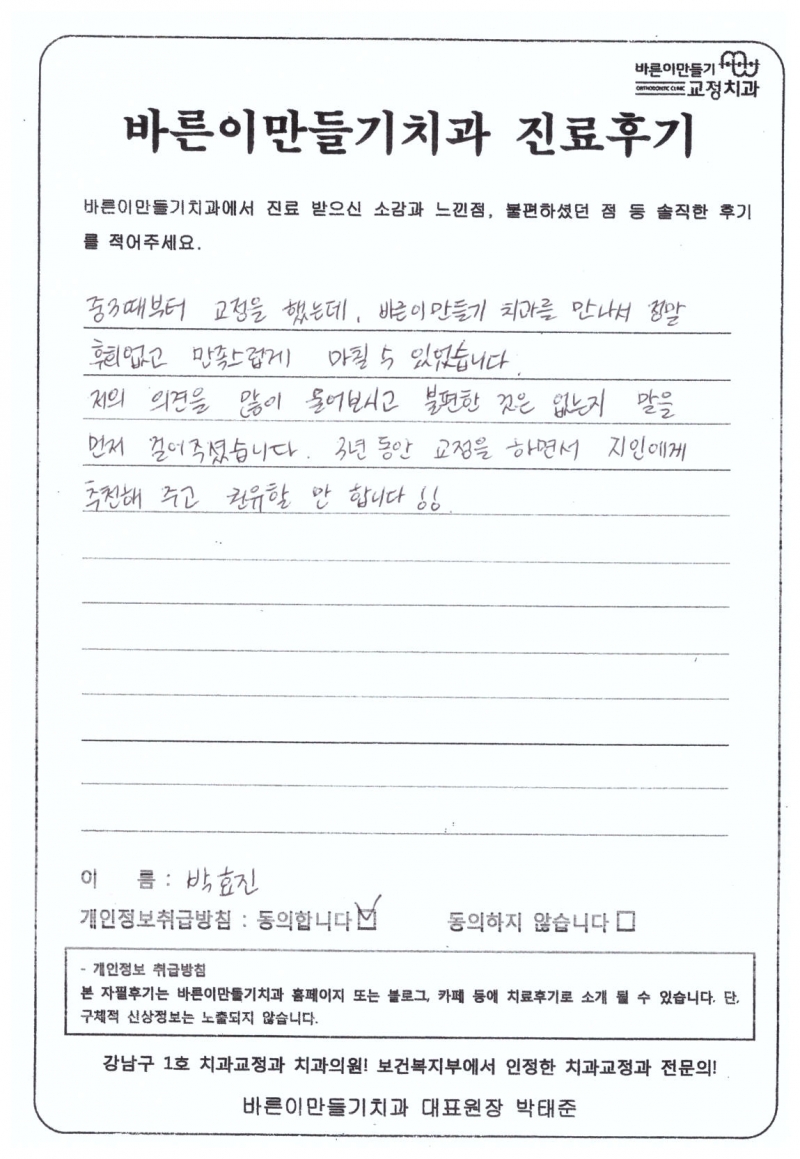 바른이만들기
ORTHODONTIC CLINIC 교정치과
바른이만들기치과 진료후기
바른이만들기치과에서 진료 받으신 소감과 느낀점, 불편하셨던 점 등 솔직한 후기
를 적어주세요.
중3때부터 교정을 했는데, 바른이만들기 치과를 만나서 정말
후회없고 만족스럽게 마칠 수 있었습니다.
저의 의견을 많이 물어보시고 불편한 것은 없는지 말을
먼저 걸어주셨습니다. 3년 동안 교정을 하면서 지인에게
추천해 주고 권유할 만 합니다 !!.
이 름 : 박효진
개인정보취급방침 : 동의합니다 ☑ 동의하지 않습니다 □
- 개인정보 취급방침
본 자필후기는 바른이만들기치과 홈페이지 또는 블로그, 카페 등에 치료후기로 소개 될 수 있습니다. 단,
구체적 신상정보는 노출되지 않습니다.
강남구 1호 치과교정과 치과의원! 보건복지부에서 인정한 치과교정과 전문의!
바른이만들기치과 대표원장 박태준